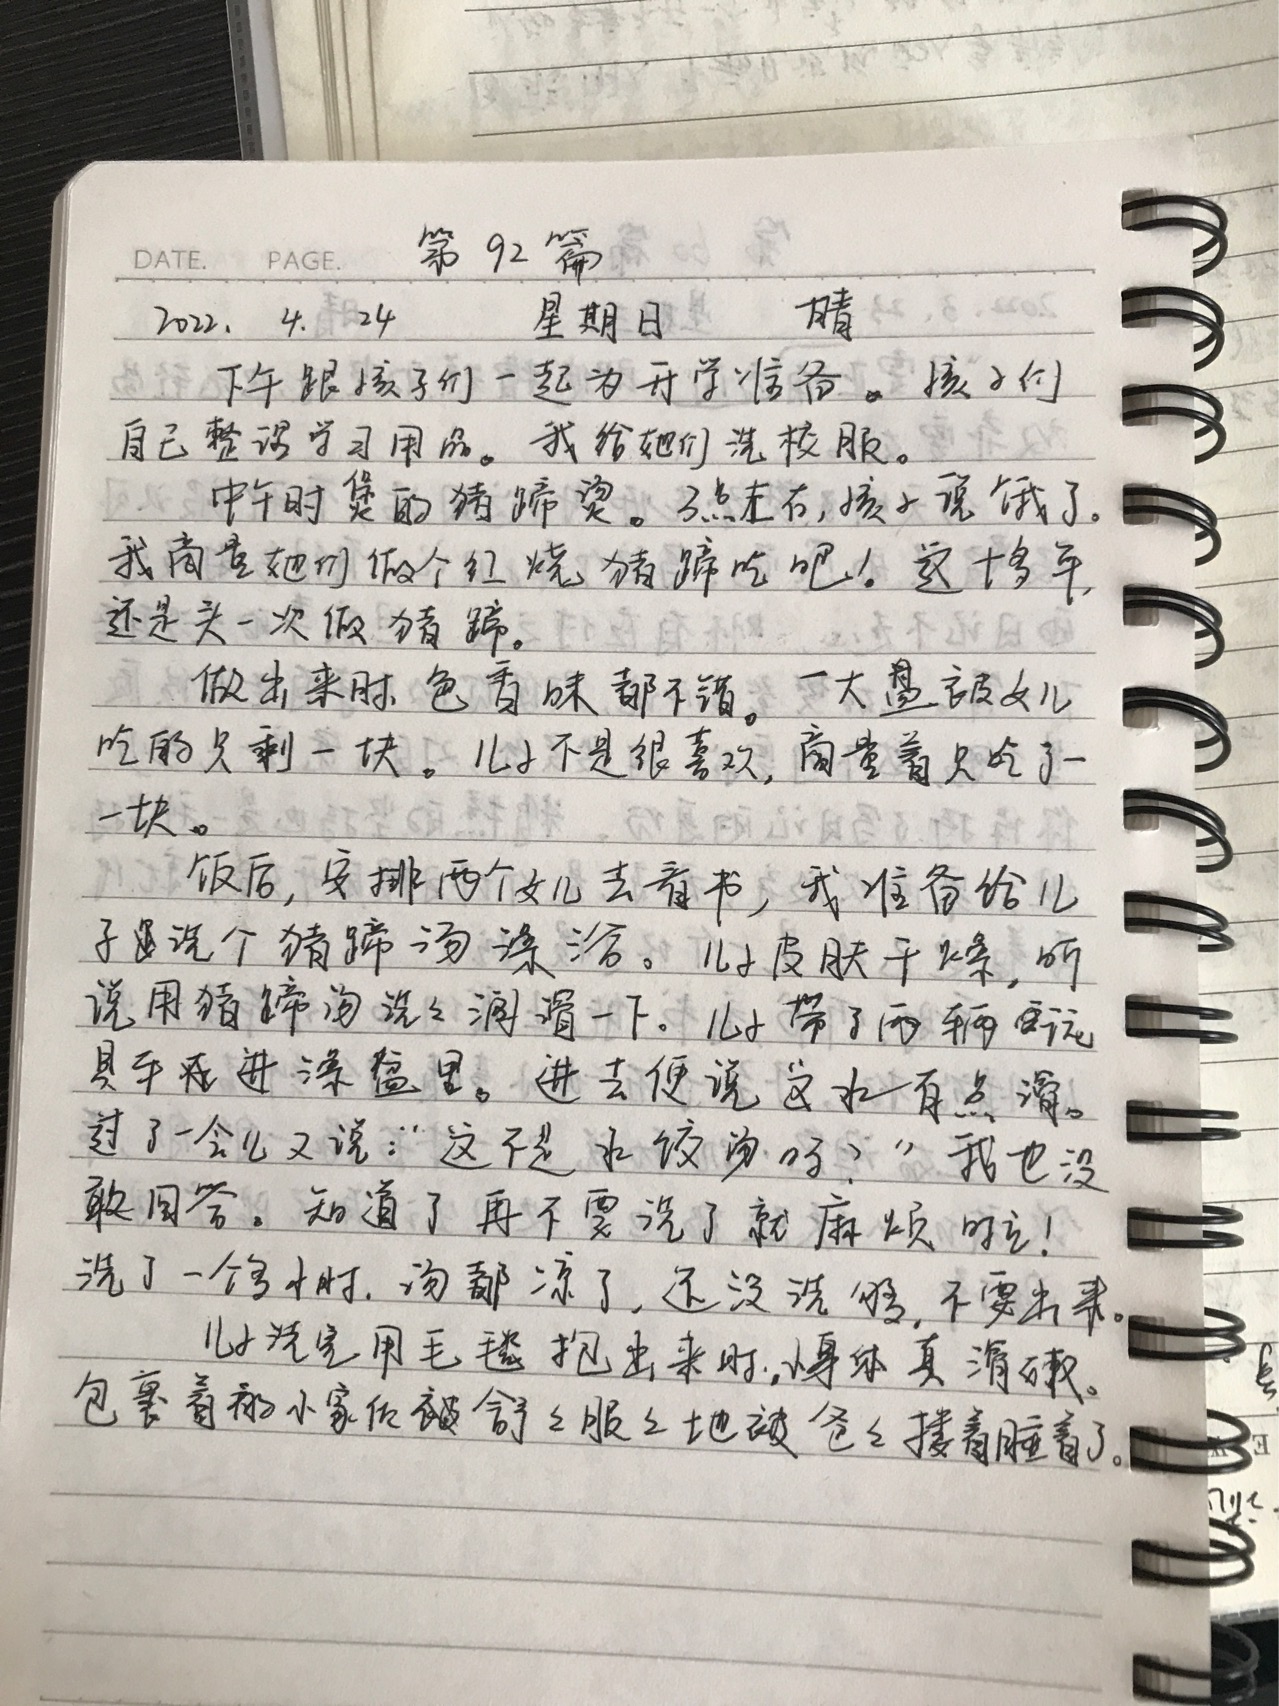 DATE. PAGE. 第92篇
2022. 4. 24 星期日 晴
下午跟孩子们一起为开学准备。孩子们
自己整理学习用品。我给她们洗校服。
中午时煲的猪蹄烫。3点左右,孩子说饿了。
我商量她们做个红烧猪蹄吃吧!这十多年,
还是头一次做猪蹄。
做出来时色香味都不错。一大盘被女儿
吃的只剩一块。儿子不是很喜欢,商量着只吃了一
一块。
饭后,安排两个女儿去看书,我准备给儿
子洗个猪蹄汤澡浴。儿子皮肤干燥,听
说用猪蹄汤洗洗润滑一下。儿子带了两辆玩
具车进澡盆里。进去便说这水有点滑。
过了一会儿又说:“这不是水饺汤吗?”我也没
敢回答。知道了再不要洗了就麻烦啦!
洗了一个多小时.汤都凉了,还没洗够,不要出来。
儿子洗完用毛毯抱出来时,身体真滑嫩。
包裹着的小家伙被舒舒服服地被爸爸搂着睡着了。